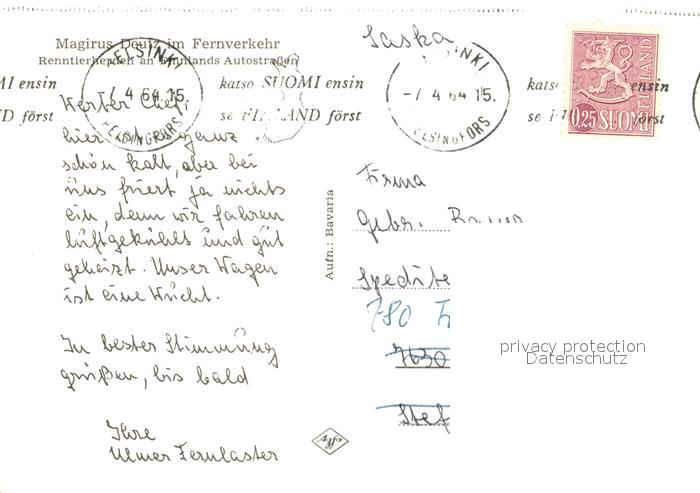 Magirus Deutz im Fernverkehr
Renntierherden an Finnlands Autostraßen
Saska
HELSINKI
-7 4 64 15.
HELSINGFORS
MI ensin
D först
katso SUOMI ensin
se FINLAND först
HELSINKI
-7 4 64 15.
HELSINGFORS
katso ensin
se först
0,25 SUOMI FINLAND
Werter Chef,
hier ist es ganz
schön kalt, aber bei
uns friert ja nichts
ein, denn wir fahren
luftgekühlt und gut
geheizt. Unser Wagen
ist eine Wucht.
In bester Stimmung
grüßen, bis bald
Ihre
Ulmer Fernlaster
Aufn.: Bavaria
Firma
Gebr.
Spedite
780
7630
Stef
privacy protection
Datenschutz